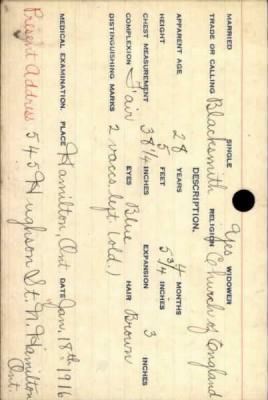 MARRIED SINGLE Yes WIDOWER
TRADE OR CALLING Blacksmith RELIGION Church of England
DESCRIPTION.
APPARENT AGE 28 YEARS 4 MONTHS
HEIGHT 5 FEET 5 3/4 INCHES
CHEST MEASUREMENT 38 1/4 INCHES EXPANSION 3 INCHES
COMPLEXION Fair EYES Blue HAIR Brown
DISTINGUISHING MARKS 2 vaccs. left (old.)
MEDICAL EXAMINATION. PLACE Hamilton, Ont DATE Jan. 18th 1916
Present Address 545 Hughson St. N. Hamilton
Ont.